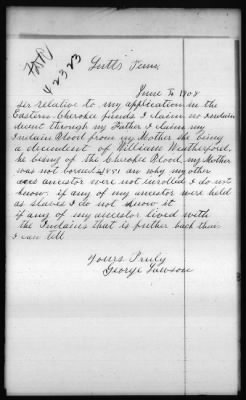 42323
Lutts Tenn.
June 8 1908
Sir relative to my application in the
Eastern Cherokee funds I claim no Indian
decent through my Father I claim my
Indian Blood from my Mother she being
a decendent of William Weatherford.
he being of the Cherokee Blood, my Mother
was not borned 1851 an why my other
ancestor were not inrolled I do not
know. if any of my ancestor were held
as slaves I do not know it
if any of my ancestor lived with
the Indians that is futher back than
I can tell
Yours Truly
George Lawson